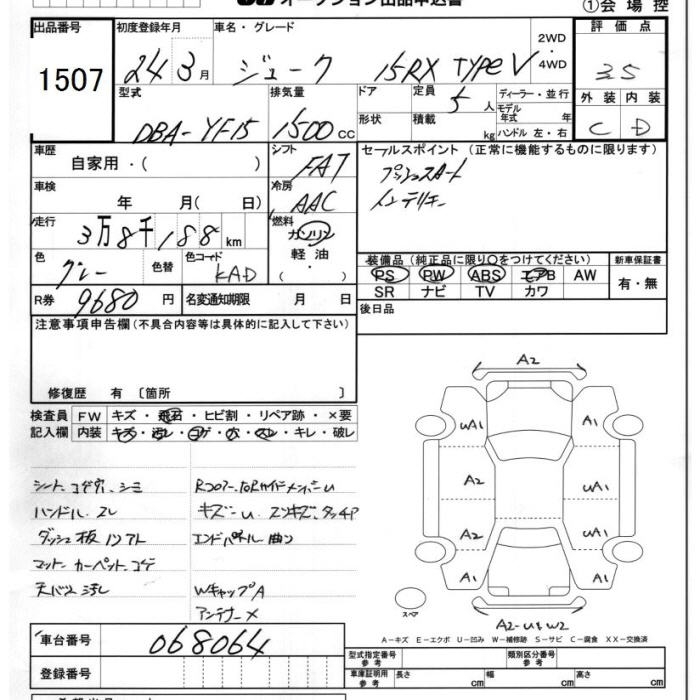 オークション出品申込書
①会場控
出品番号 1507
初度登録年月 24 3月
車名・グレード ジューク 15RX TYPE V
2WD
4WD
評価点 3.5
外装 内装
C D
型式 DBA-YF15
排気量 1500 cc
ドア
形状
定員 5人
積載 kg
ディーラー・並行
モデル年式 年
ハンドル 左・右
車歴 自家用・( )
シフト FAT
セールスポイント (正常に機能するものに限ります)
プッシュスタート
インテリキー
車検 年 月( 日)
冷房 AAC
走行 3万8千188km
燃料 ガソリン
軽油
・( )
色 グレー
色替
色コード KAD
装備品 (純正品に限り○をつけてください)
PS PW ABS エアB AW
SR ナビ TV カワ
新車保証書
有・無
R券 9680円
名変通知期限 月 日
後日品
注意事項申告欄(不具合内容等は具体的に記入して下さい)
修復歴 有 〔箇所 〕
検査員 FW キズ・飛石・ヒビ割・リペア跡・×要
記入欄 内装 キズ・汚レ・コゲ・穴・スレ・キレ・破レ
シート コゲ穴、シミ
ハンドル スレ
ダッシュ板
マット カーペット コゲ
天バリ 汚レ
キズ-U
エンドパネル 曲ガ
WキャップA
アンテナー×
A2
WA1 A1
A2 UA1
A2 UA1
A1 UA1
スペア
A2-U&W2
A-キズ E-エクボ U-凹み W-補修跡 S-サビ C-腐食 XX-交換済
車台番号 068064
登録番号
型式指定番号 参考
類別区分番号 参考
車庫証明用 参考 長さ cm 幅 cm 高さ cm